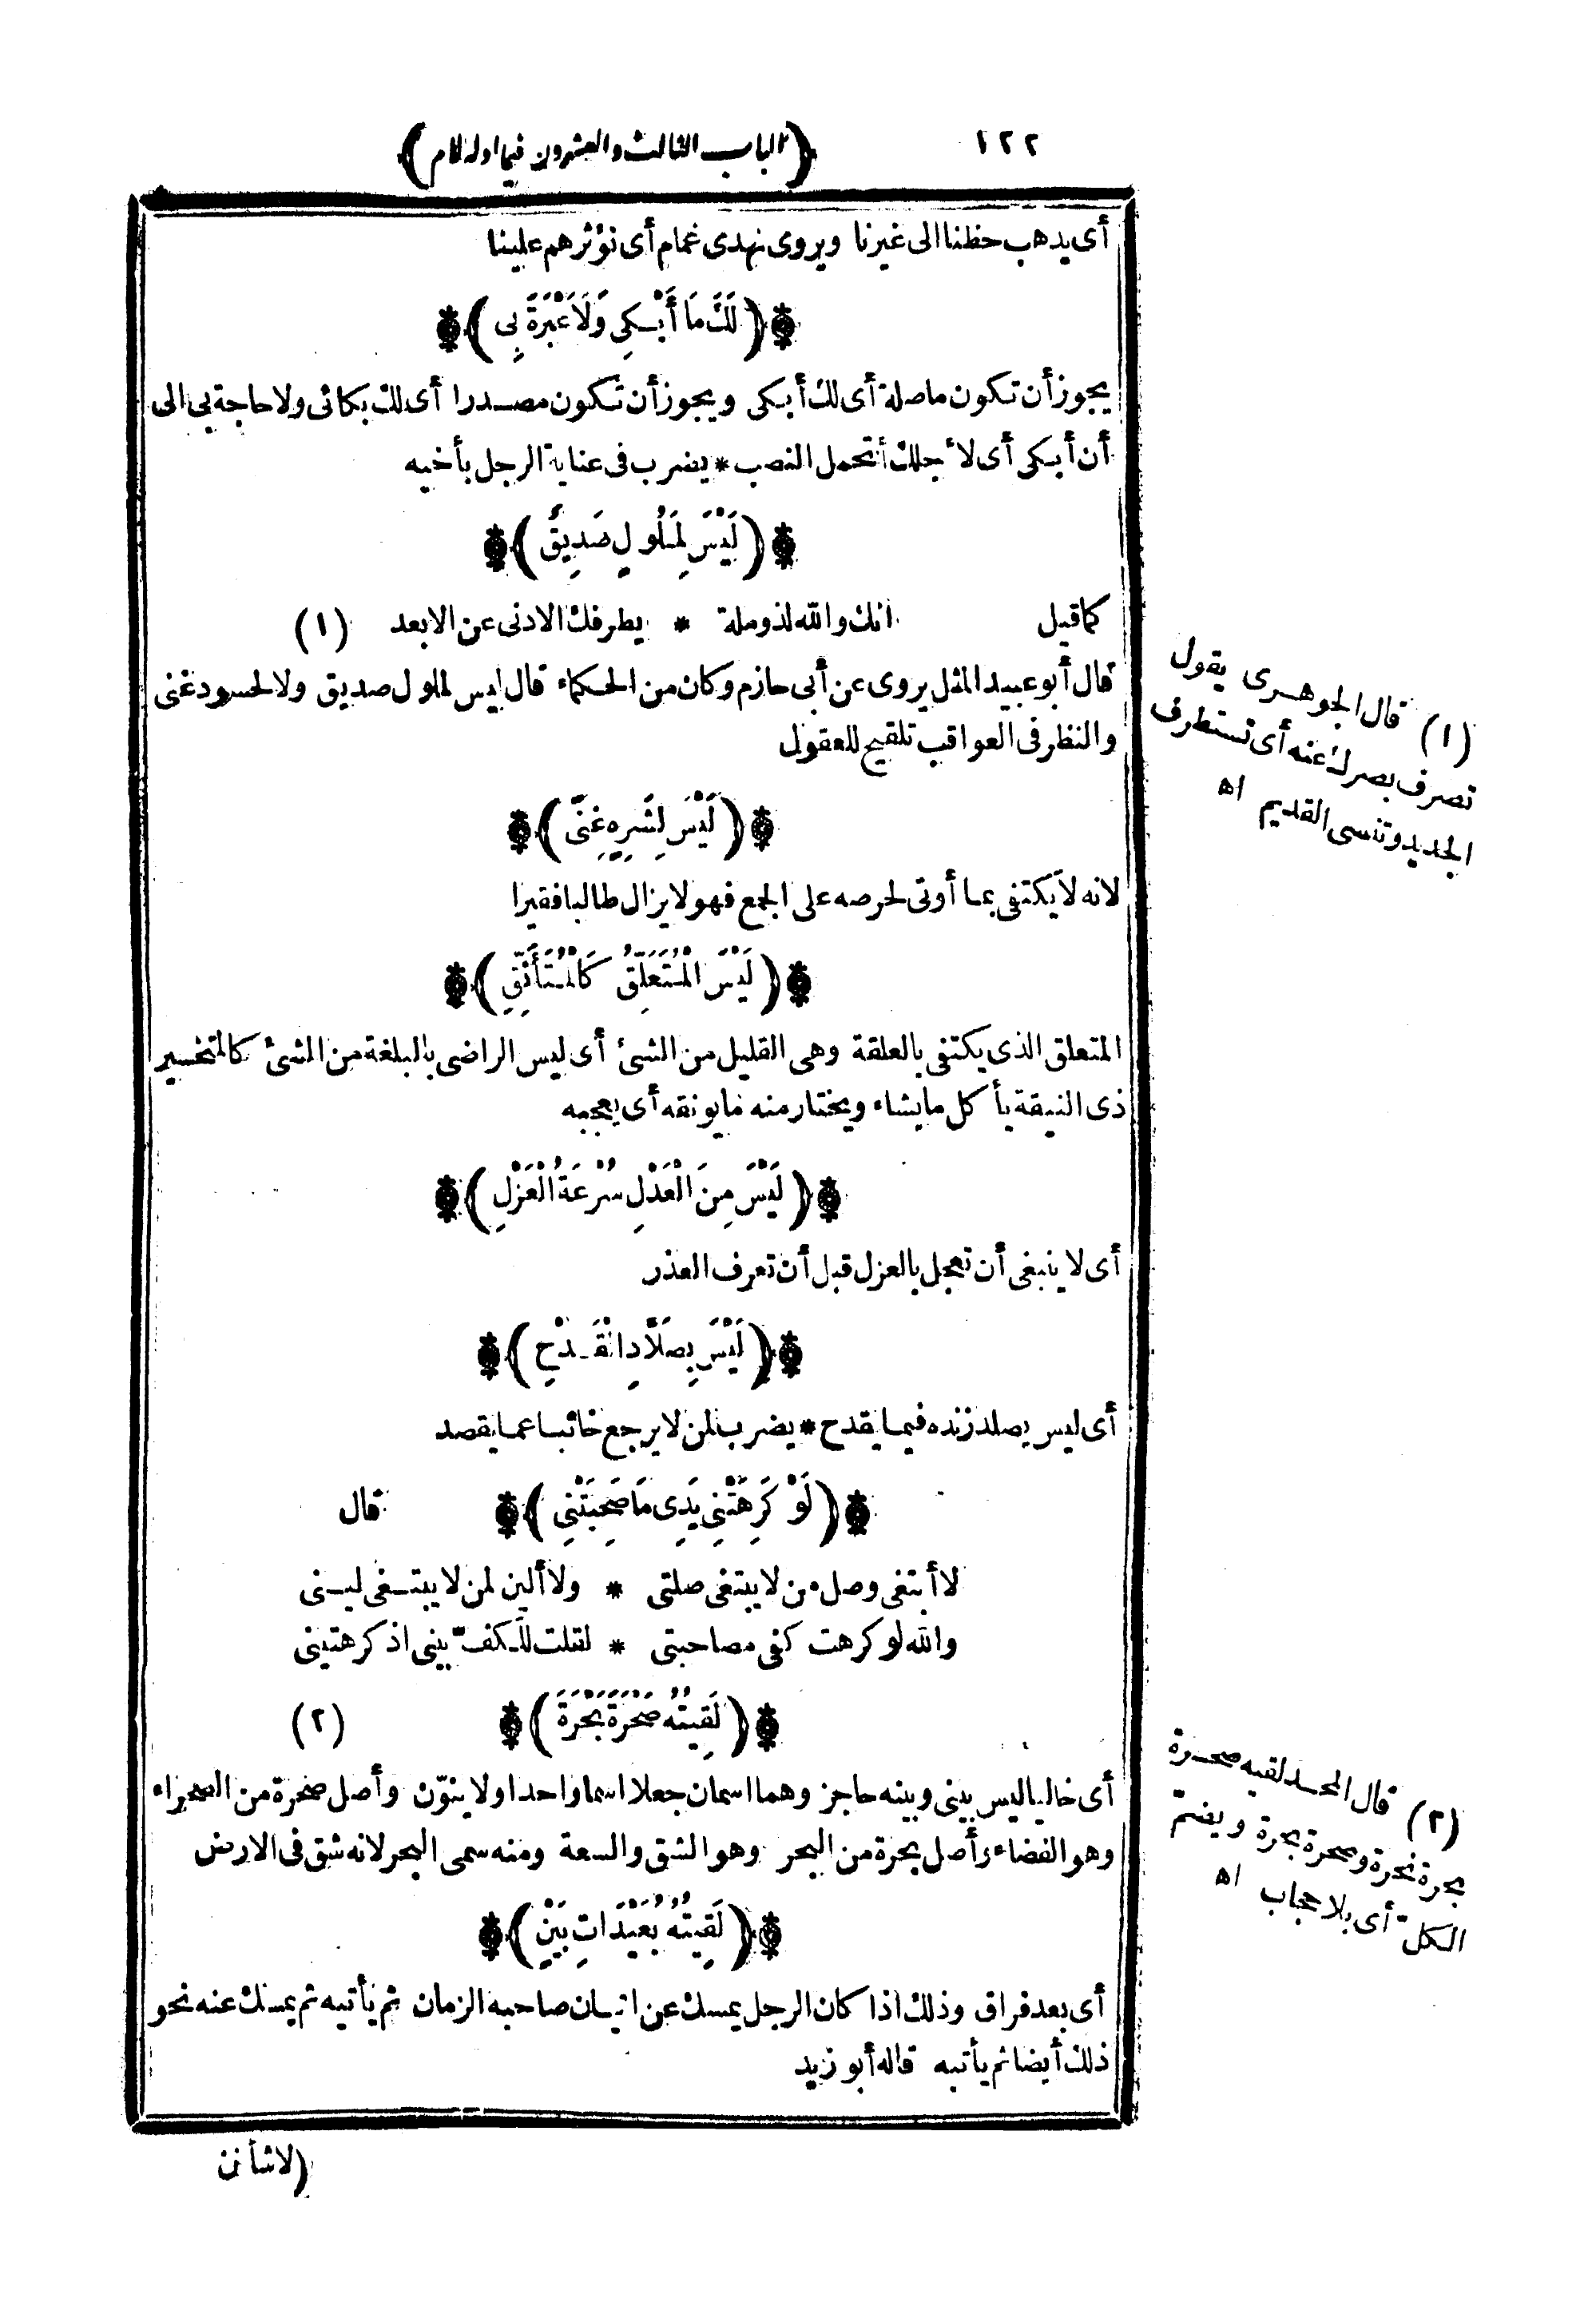 ١٢٢ (الباب الثالث والعشرون فيما اوله لام)
أى يذهب حظنا الى غيرنا ويروى نهدى غمام أى نؤثرهم علينا
(لَكَ مَا أَبْكِى وَلَا عَبْرَةَ بِى)
يجوز أن تكون ما صلة أى لك أبكى ويجوز أن تكون مصدرا أى لك بكائى ولا حاجة بى الى
أن أبكى أى لأجلك أتحمل النصب * يضرب فى عناية الرجل بأخيه
(لَيْسَ لِمَلُولٍ صَدِيقٌ)
كما قيل انك والله لذو ملة * يطرفك الادنى عن الابعد (١)
قال أبو عبيد المثل يروى عن أبى حازم وكان من الحكماء قال ليس لملول صديق ولا لحسود غنى
والنظر فى العواقب تلقيح للعقول
(لَيْسَ لِشَرِهٍ غِنًى)
لانه لا يكتفى بما أوتى لحرصه على الجمع فهو لا يزال طالبا فقيرا
(لَيْسَ الْمُتَعَلِّقُ كَالْمُتَأَنِّقِ)
المتعلق الذى يكتفى بالعلقة وهى القليل من الشئ أى ليس الراضى بالبلغة من الشئ كالمتخير
ذى النيقة يأكل ما يشاء ويختار منه ما يونقه أى يعجبه
(لَيْسَ مِنَ الْعَدْلِ سُرْعَةُ الْعَزْلِ)
أى لا ينبغى أن تعجل بالعزل قبل أن تعرف العذر
(لَيْسَ بِصَلَّادِ الْقَدْحِ)
أى ليس يصلد زنده فيما يقدح * يضرب لمن لا يرجع خائبا عما يقصد
(لَوْ كَرِهَتْنِى يَدِى مَا صَحِبَتْنِى) قال
لا أبتغى وصل من لا يبتغى صلتى * ولا ألين لمن لا يبتغى لينى
والله لو كرهت كفى مصاحبتى * لقلت للكف بينى اذ كرهتينى
(لَقِيتُهُ صَحْرَةَ بَحْرَةَ) (٢)
أى خاليا ليس بينى وبينه حاجز وهما اسمان جعلا اسما واحدا ولا ينوّن وأصل صحرة من الصحراء
وهو الفضاء وأصل بحرة من البحر وهو الشق والسعة ومنه سمى البحر لانه شق فى الارض
(لَقِيتُهُ بُعَيْدَاتِ بَيْنٍ)
أى بعد فراق وذلك اذا كان الرجل يمسك عن اتيان صاحبه الزمان ثم يأتيه ثم يمسك عنه نحو
ذلك أيضا ثم يأتيه قاله أبو زيد
(لاشأنن
(١) قال الجوهرى يقول
تصرف بصرك عنه أى تستطرف
الجديد وتنسى القديم اه
(٢) قال المجد لقيه صحرة
بحرة نحرة وصحرة بحرة ويضم
الكل أى بلا حجاب اه